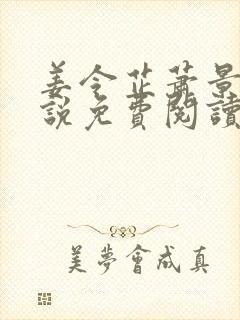 姜令芷萧景
說免費閱讀
美夢會成真